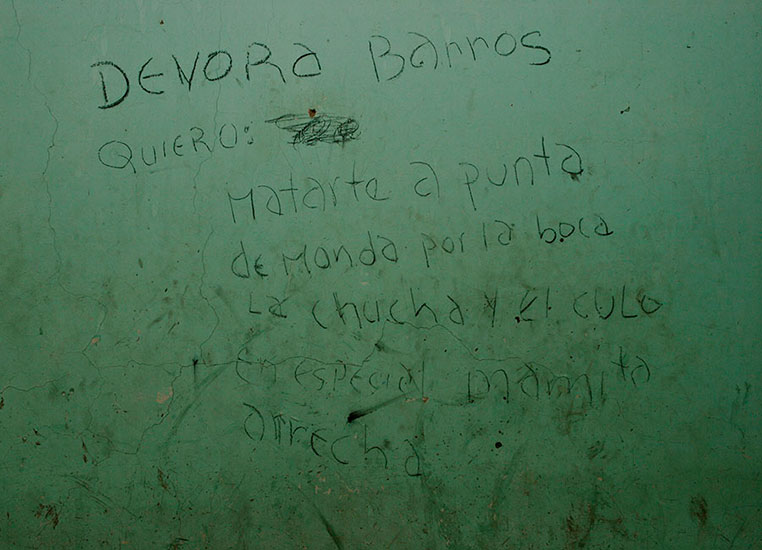 DEVORa Barros
QUIERO:
Matarte a punta
de Monda por la boca
La chucha y El CULO
en especial mamita
arrecha